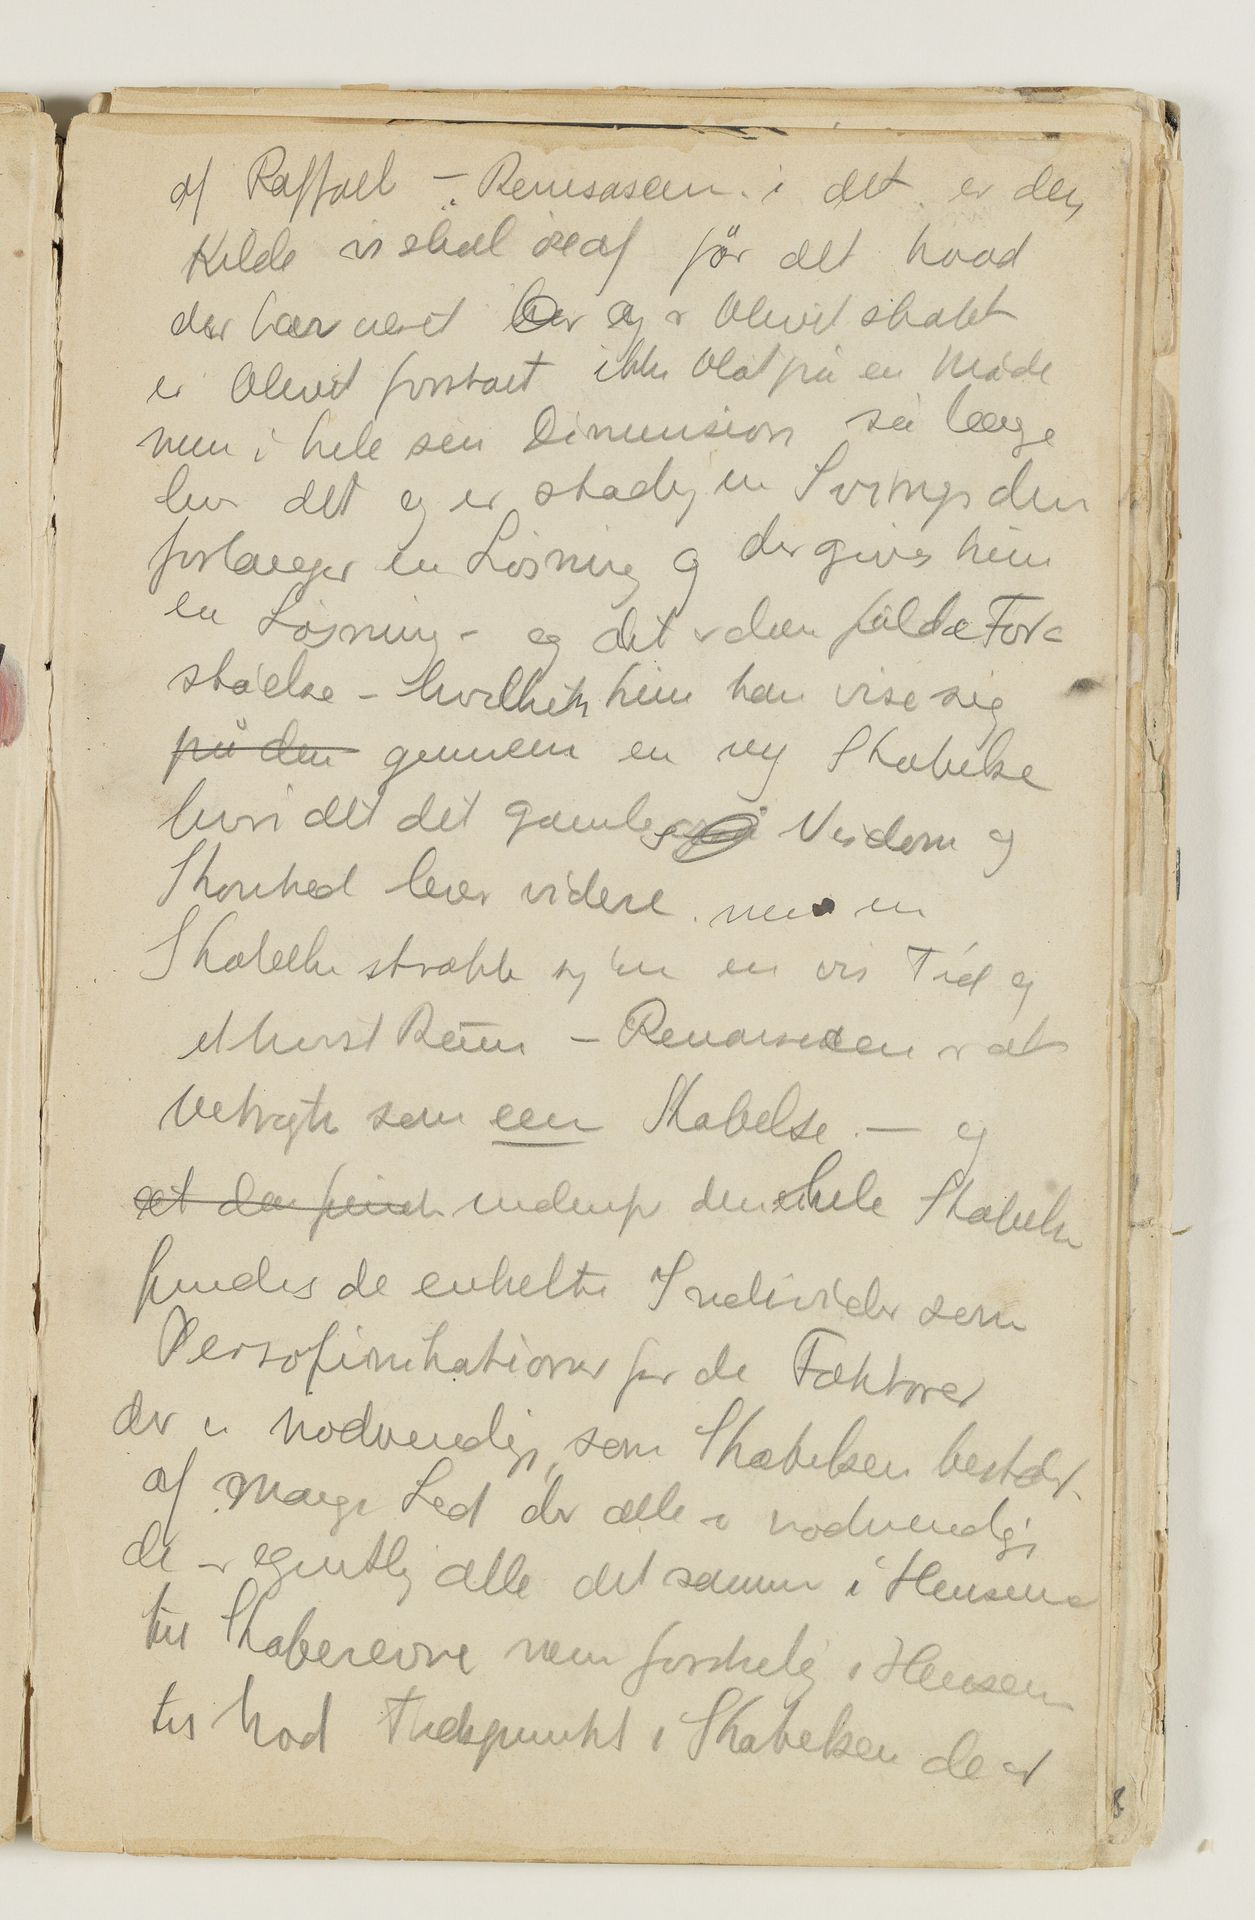 af Raffael – Renæsasen. i det er den
Kilde vi skal øse af før alt hvad
der har været lev og er blevet skabt
er blevet forstaet ikke blot på en Måde
men i hele sin Dimension så længe
lever det og er stadig en Svinger den
forlanger en Løsning og der gives kun
en Løsning – og det er den fulde For=
ståelse – hvilken kun kan vise sig
på den gennem en ny Skabelse
hvori det det gamles Visdom og
Skonhed lever videre. men en
Skabelse strækk sig kun en vis Tid og
et hvist Rum – Renæssancen er at
betragte som een Skabelse. – og
at der find indenfor den hele Skabelse
findes de enkelte Individer som
Persofinikationer for de Faktorer
der er nodvendig, som Skabelsen bestaar
af mange Led der alle er nodvendig,
de er egentlig alle det samme i Hensene
til Skaberevne men forskelig i Hensen
til hvad Tidspunkt i Skabelsen de er
8